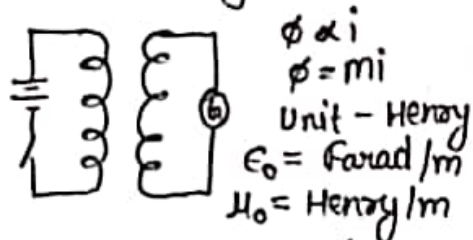 G
ϕ ∝ i
ϕ = mi
Unit - Henry
ε₀ = Farad/m
μ₀ = Henry/m